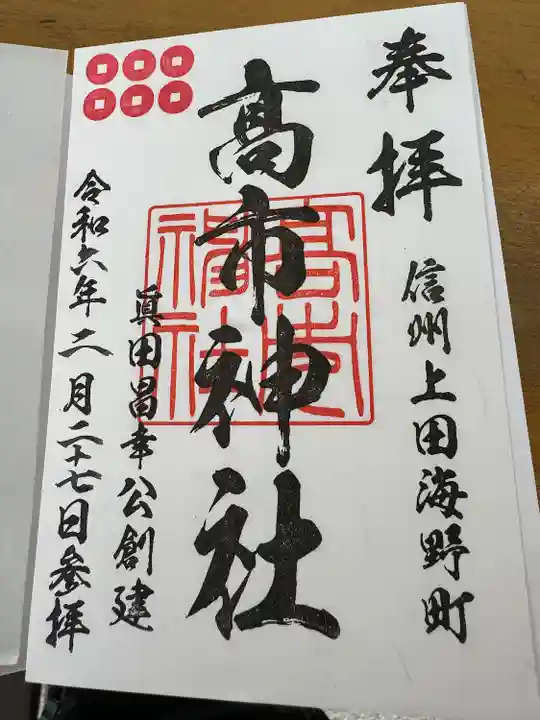 奉拝
信州上田海野町
髙市神社
眞田昌幸公創建
令和六年二月二十七日参拝